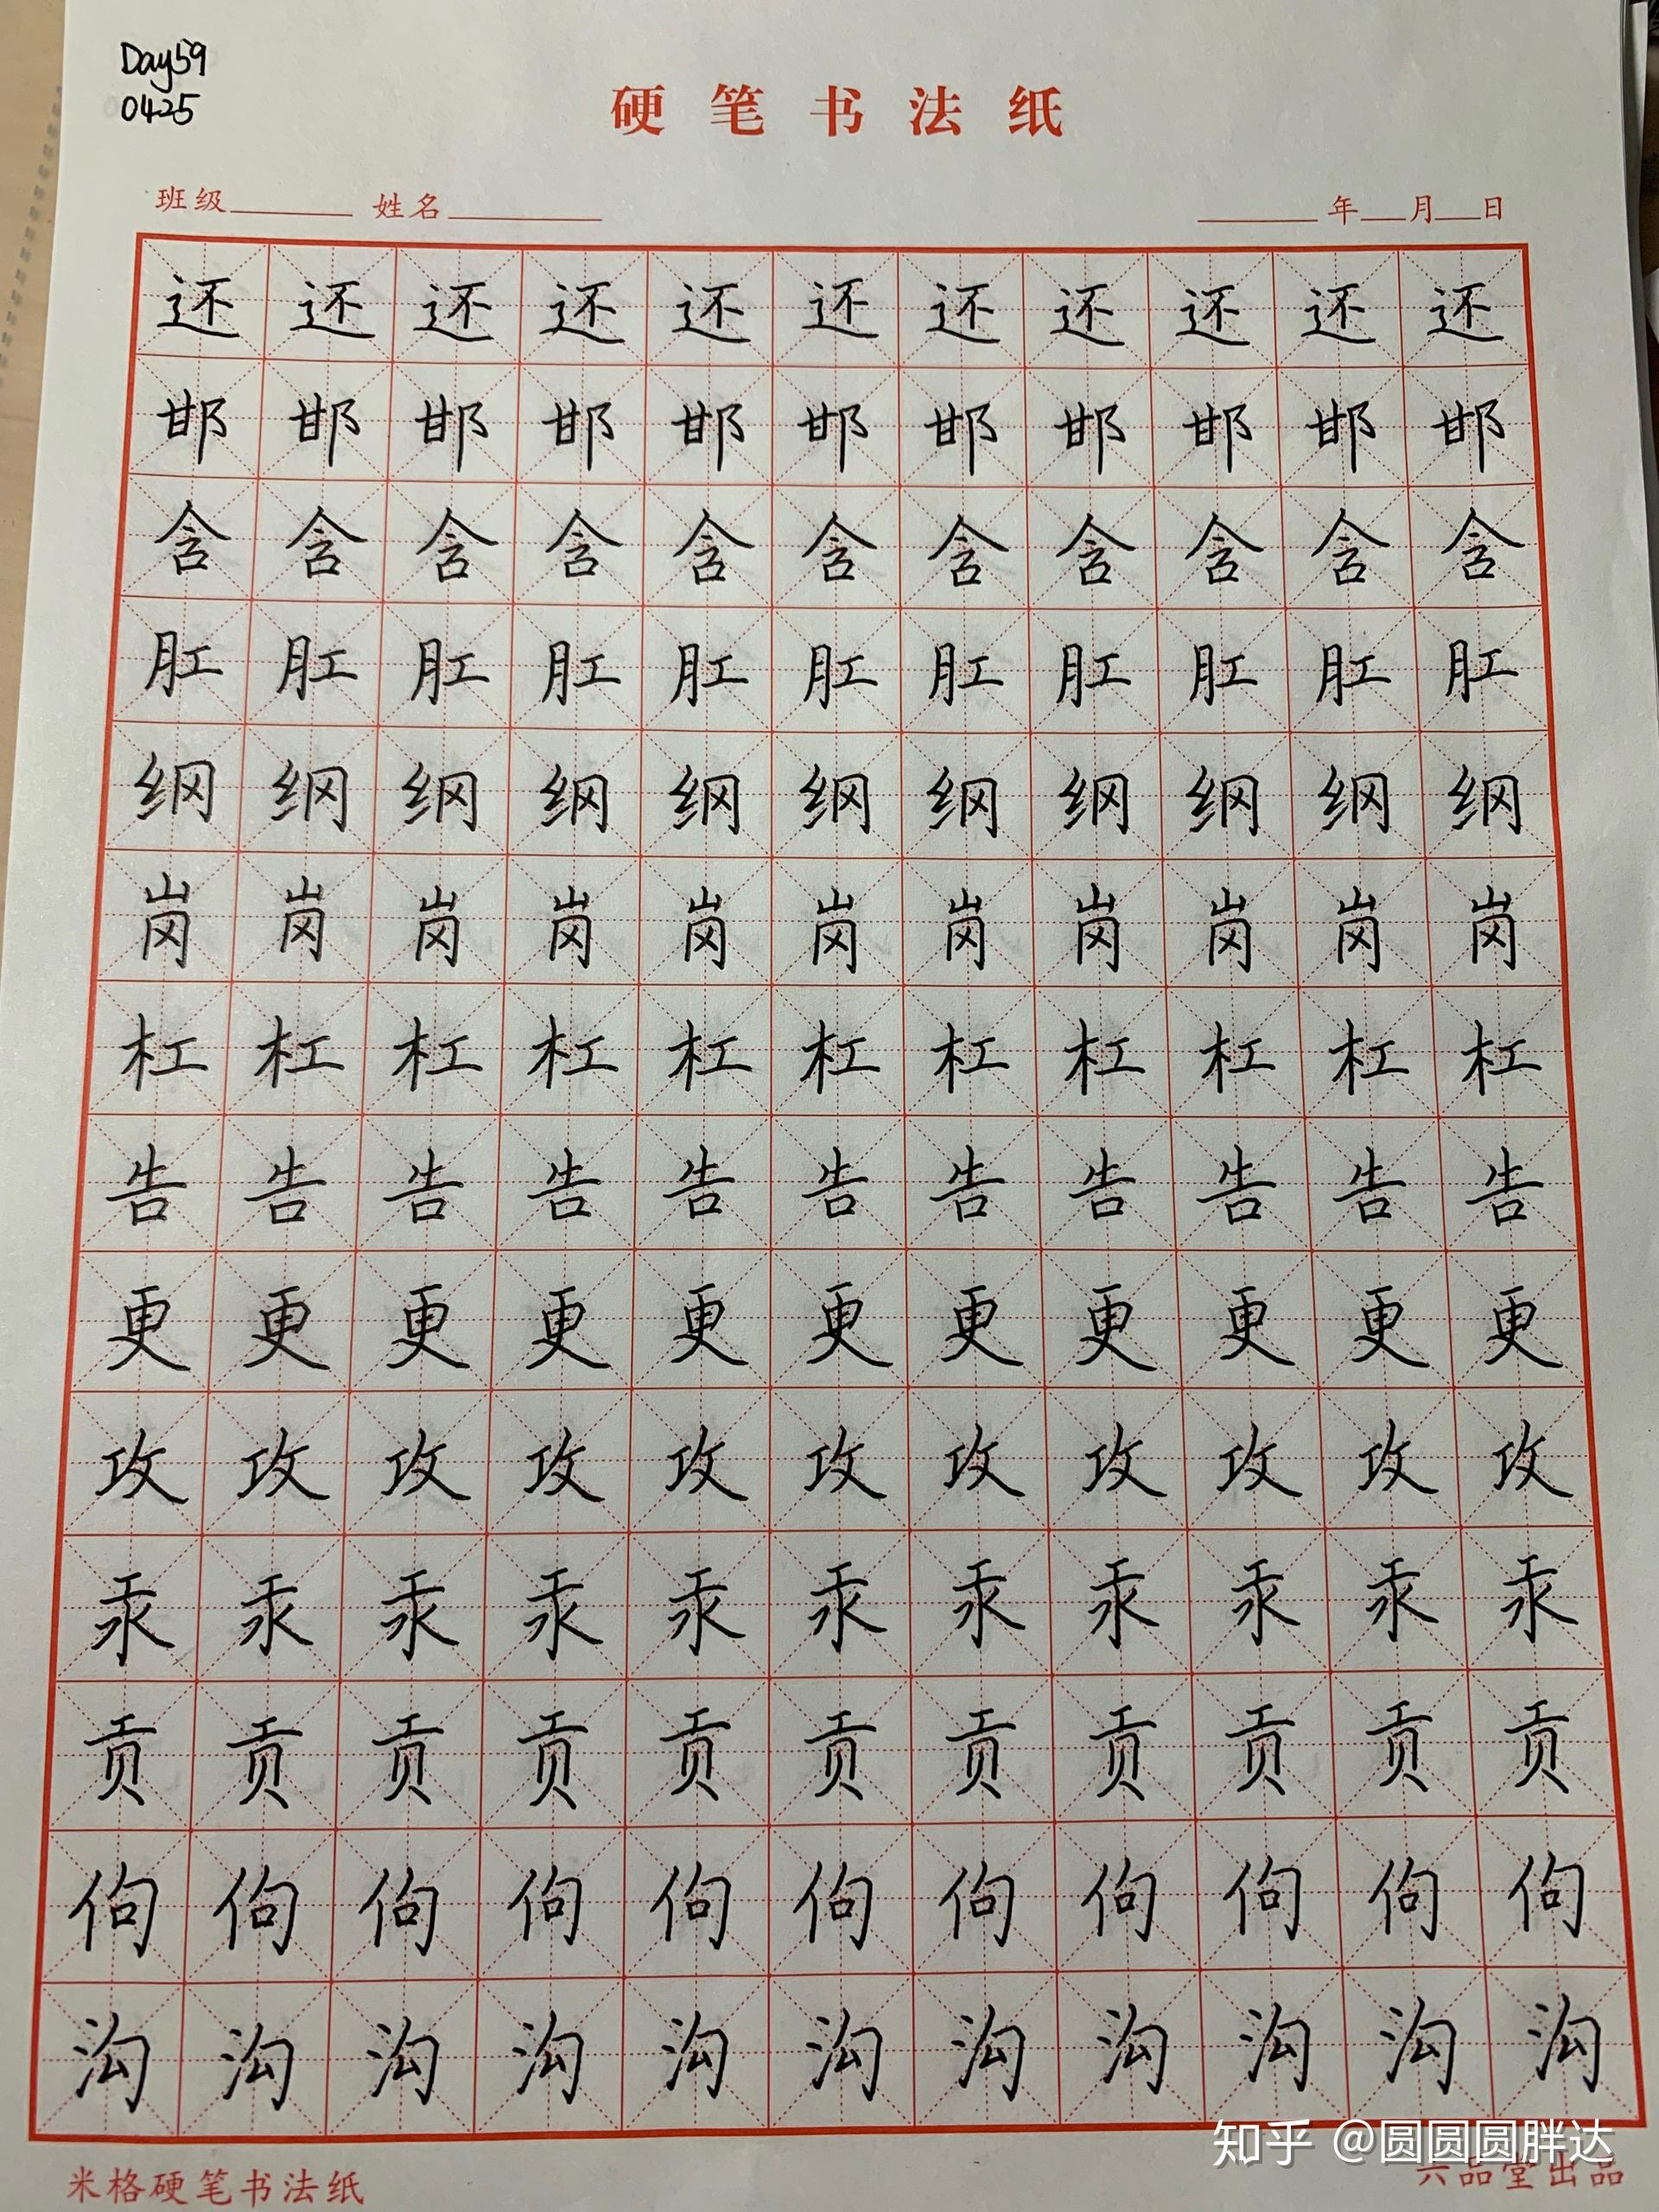 Day59
0425
硬笔书法纸
班级 姓名 年 月 日
还还还还还还还还还还还
邯邯邯邯邯邯邯邯邯邯邯
含含含含含含含含含含含
肛肛肛肛肛肛肛肛肛肛肛
纲纲纲纲纲纲纲纲纲纲纲
岗岗岗岗岗岗岗岗岗岗岗
杠杠杠杠杠杠杠杠杠杠杠
告告告告告告告告告告告
更更更更更更更更更更更
攻攻攻攻攻攻攻攻攻攻攻
汞汞汞汞汞汞汞汞汞汞汞
贡贡贡贡贡贡贡贡贡贡贡
佝佝佝佝佝佝佝佝佝佝佝
沟沟沟沟沟沟沟沟沟沟沟
知乎 @圆圆圆胖达
米格硬笔书法纸 六品堂出品